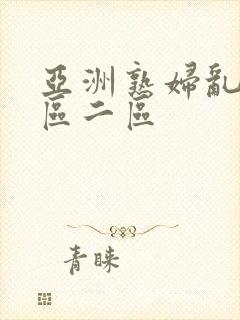 亞洲熟婦亂
區二區
青睞